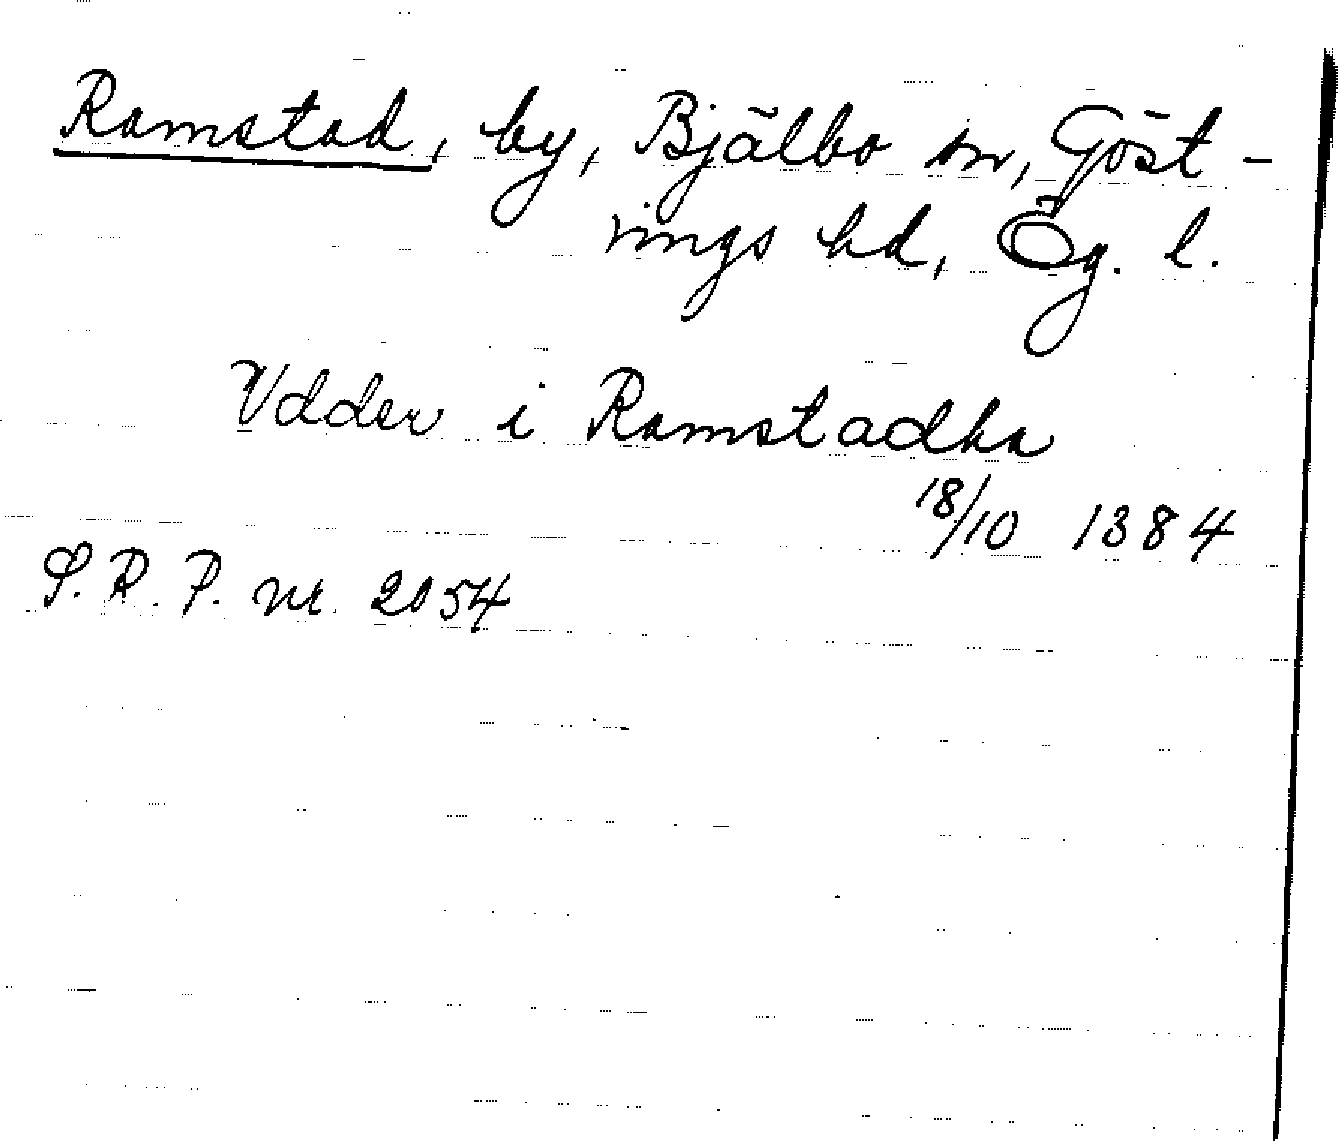 Ramstad, by, Bjälbo sn, Göst-
rings hd, Ög. l.
Vdder i Ramstadha
18/10 1384
S.R.P. nr. 2054